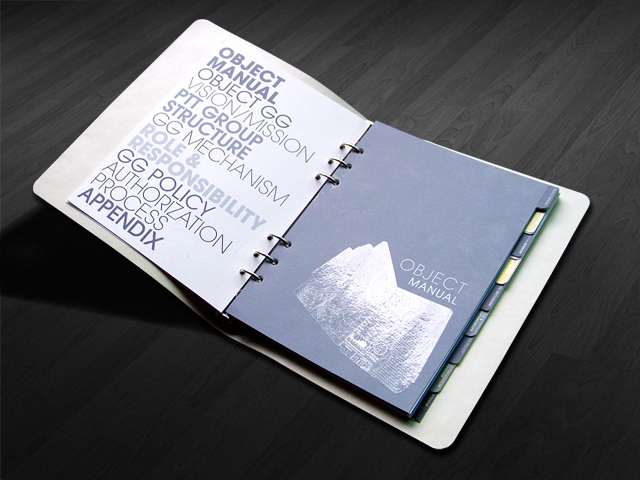 OBJECT
MANUAL
OBJECT GG
VISION/MISSION
PIT GROUP
STRUCTURE
GG MECHANISM
ROLE &
RESPONSIBILITY
GG POLICY
AUTHORIZATION
PROCESS
APPENDIX
OBJECT
MANUAL